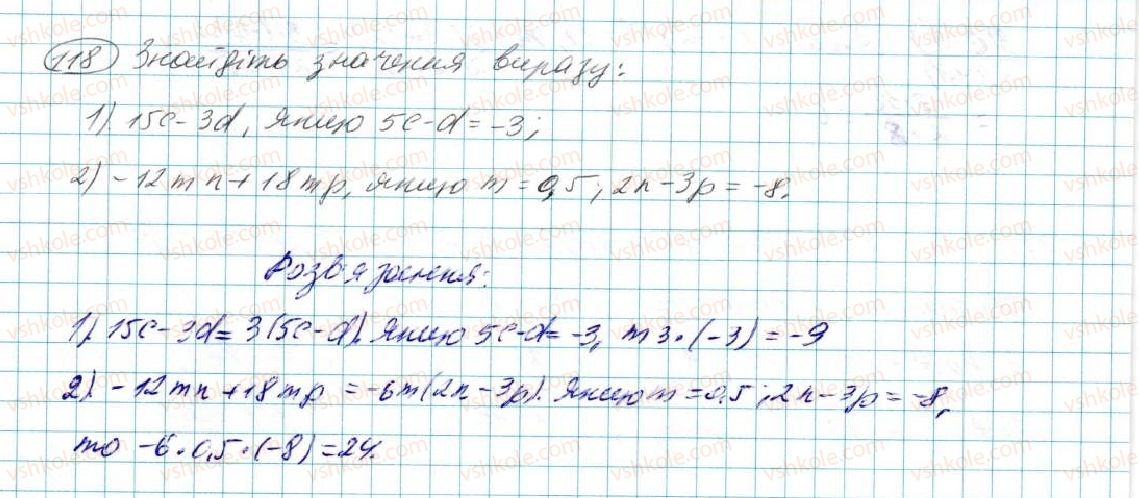 118 Знайдіть значення виразу:
1) 15c - 3d, якщо 5c - d = -3;
2) -12mn + 18mp, якщо m = 0,5; 2n - 3p = -8.
Розв'язання:
1). 15c - 3d = 3(5c - d). Якщо 5c - d = -3, то 3·(-3) = -9
2). -12mn + 18mp = -6m(2n - 3p). Якщо m = 0,5; 2n - 3p = -8,
то -6·0,5·(-8) = 24.
vshkole.com